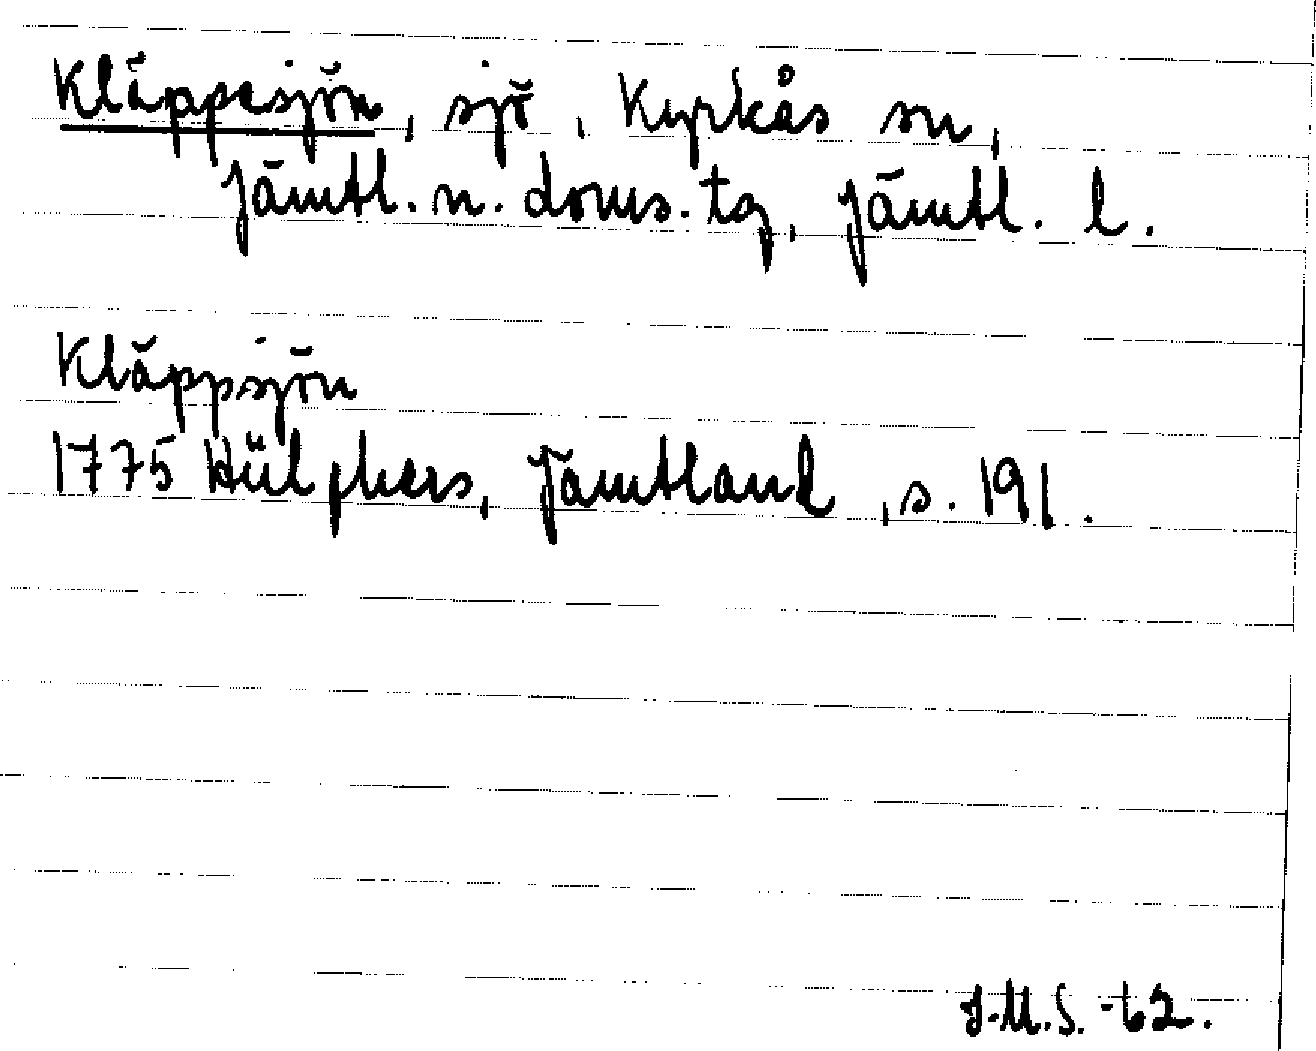 Kläppesjön, sjö, Kyrkås sn,
Jämtl. n. doms. tg, Jämtl. l.
Kläppsjön
1775 Hülphers, Jämtland, s. 191.
J.M.S. -62.